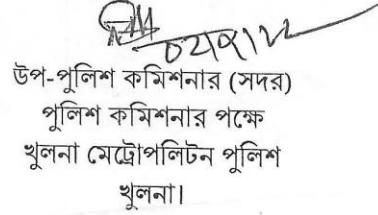 উপ-পুলিশ কমিশনার (সদর)
পুলিশ কমিশনার পক্ষে
খুলনা মেট্রোপলিটন পুলিশ
খুলনা।